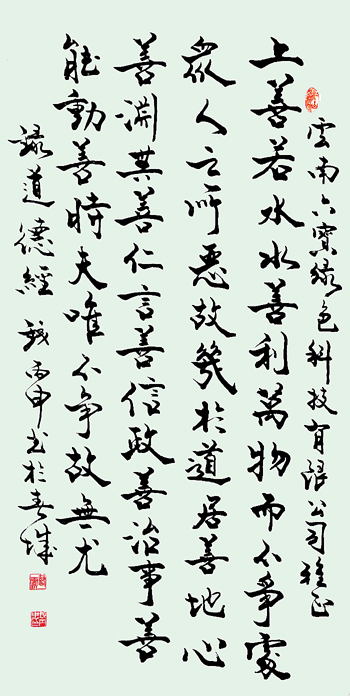 雲南六寶緑色科技有限公司雅正
上善若水水善利萬物而不爭處
衆人之所惡故幾於道居善地心
善淵其善仁言善信政善治事善
能動善時夫唯不爭故無尤
録道德經 歲丙申書於春城